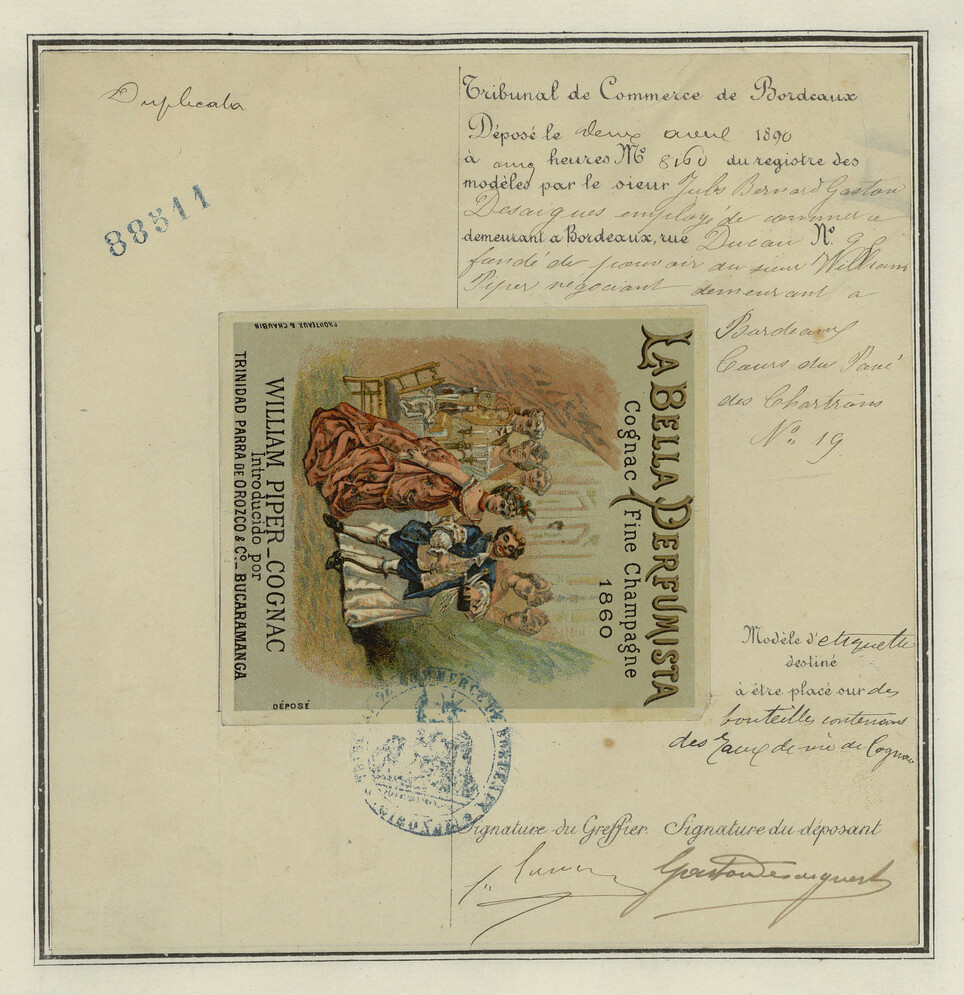 Duplicata
88511
Tribunal de Commerce de Bordeaux
Déposé le deux avril 1890
à cinq heures No 8160 du registre des
modèles par le sieur Jules Bernard Gaston
Desaigues employé de commerce
demeurant a Bordeaux, rue Ducau No. 9
fondé de pouvoir du sieur William
Piper négociant demeurant a
Bordeaux
Cours du Pavé
des Chartrons
No. 19
LA BELLA PERFUMISTA
Cognac Fine Champagne
1860
PROUTEAUX & CHAUBIN
WILLIAM PIPER_COGNAC
Introducido por
TRINIDAD PARRA DE OROZCO & Co_ BUCARAMANGA
DÉPOSÉ
Modèle d'etiquette
destiné
à être placé sur des
bouteilles contenant
des Eaux de vie de Cognac
TRIBUNAL DE COMMERCE DE BORDEAUX
GIRONDE
Signature du Greffier. Signature du déposant